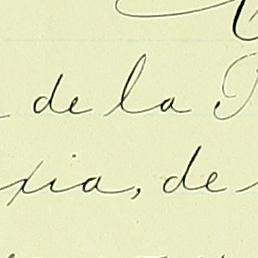 de la
xia, de